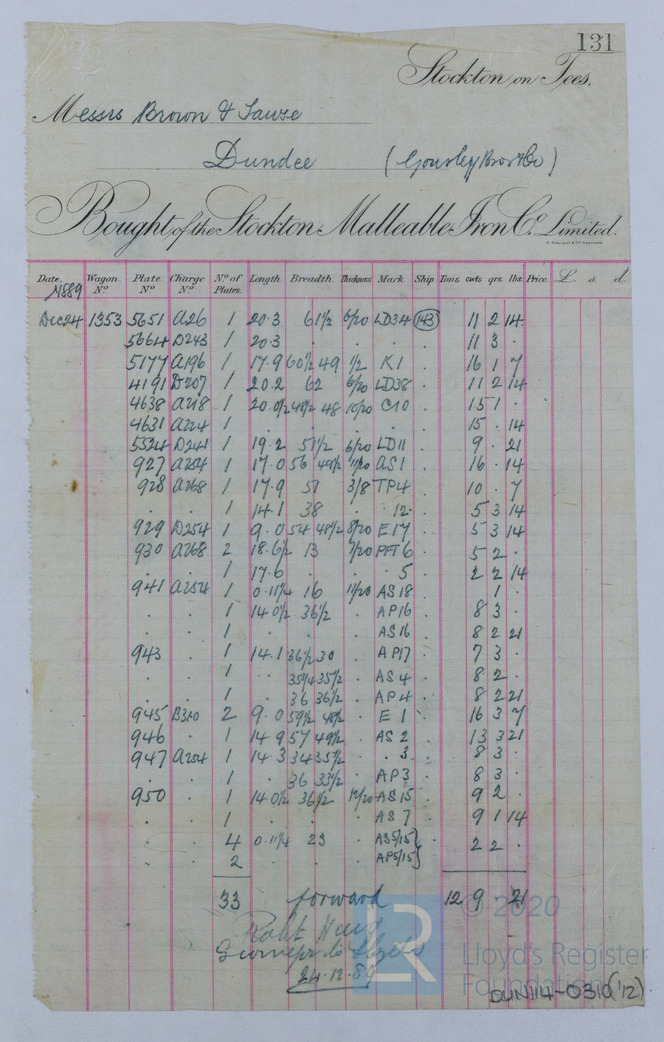 131
Stockton on Tees.
Messrs Brown &
Dundee (Gourlay Bros & Co)
Bought of the Stockton Malleable Iron Co. Limited.
Date. Wagon No. Plate No. Charge No. No. of Plates. Length Breadth Thickness Mark Ship Tons cwts qrs. lbs. Price £ s d.
1889
Dec 24 1353 5651 A26 1 20.3 61½ 6/20 LD34 143 11 2 14
5664 D243 1 20.3 . . . 11 3 .
5177 A196 1 17.9 60½ 49 ½ K1 . 16 1 7
4191 D207 1 20.2 62 6/20 LD38 . 11 2 14
4638 A218 1 20.0½ 48 10/20 C10 . 15 1 .
4631 A224 1 . . . . . 15 . 14
5324 D241 1 19.2 51½ 6/20 LD11 9 . 21
927 A254 1 17.0 56 49½ 11/20 AS1 16 . 14
928 A268 1 17.9 51 3/8 TP4 10 . 7
. . 1 14.1 38 . 12 . 5 3 14
929 D254 1 9.0 54 48½ 8/20 E17 . 5 3 14
930 A268 2 18.6½ 13 7/20 PFT6 5 2 .
. . 1 17.6 . . 5 . 2 2 14
941 A254 1 0.11¼ 16 11/20 AS18 1 .
. . 1 14.0½ 36½ . AP16 . 8 3 .
. . 1 . . . AS16 . 8 2 21
943 . 1 14.1 36½ 30 . AP17 . 7 3 .
. . 1 . 35¼ 35½ . AS4 . 8 2 .
. . 1 . 36 36½ . AP4 . 8 2 21
945 B310 2 9.0 59½ 48½ . E1 . 16 3 7
946 . 1 14.9 57 49½ . AS2 . 13 3 21
947 A254 1 14.3 34 35½ . . 3 . 8 3 .
. . 1 . 36 33½ . AP3 . 8 3 .
950 . 1 14.0½ 36½ 12/20 AS15 9 2 .
. . 1 . . . AS7 . 9 1 14
. . 4 0.11¼ 23 . AS5/15 } . 2 2 .
. . 2 . . . AP5/15 }
33 forward 12 9 . 21
Robt
Surveyor to Lloyds
24.12.89
© 2020
LR
Lloyd's Register
Foundation
DUN114-0310(12)